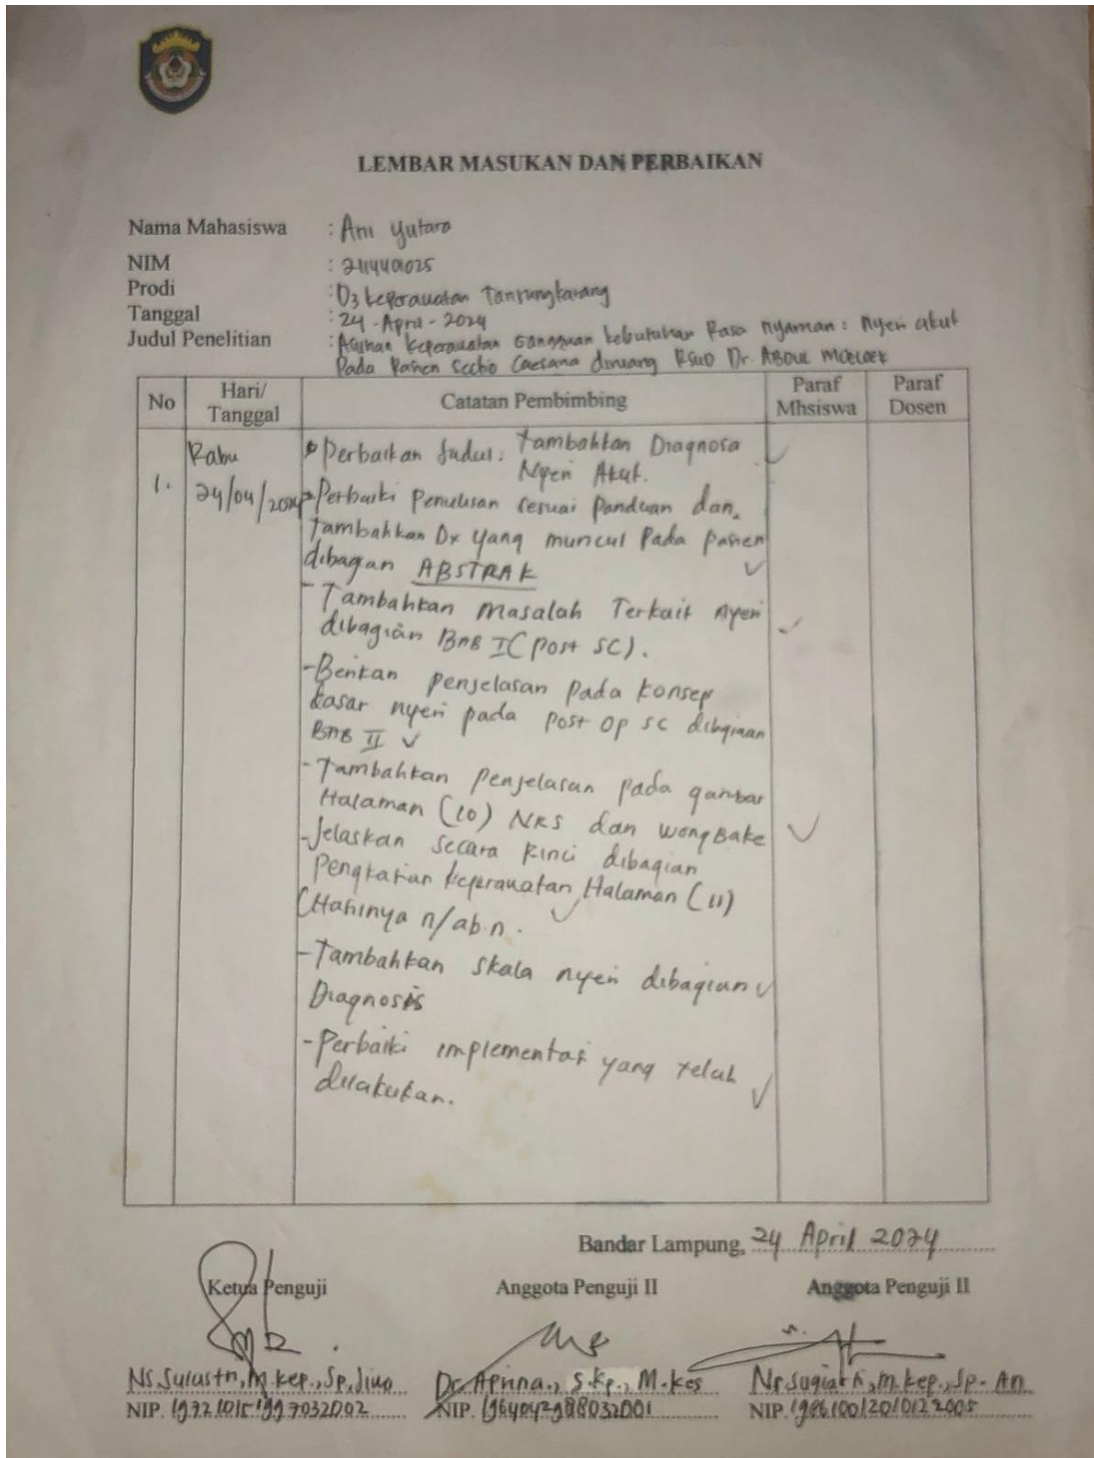 LEMBAR MASUKAN DAN PERBAIKAN
Nama Mahasiswa : Ani Yutara
NIM :
Prodi : D3 Keperawatan Tanjungkarang
Tanggal : 24 - April - 2024
Judul Penelitian : Asuhan Keperawatan Gangguan kebutuhan Rasa nyaman : nyeri akut
Pada Pasien Sectio Caesaria diruang RSUD Dr. ABDUL MOELOEK
No Hari/ Tanggal Catatan Pembimbing Paraf Mhsiswa Paraf Dosen
1. Rabu 24/04/2024
Perbaikan Judul : Tambahkan Diagnosa
Nyeri Akut.
Perbaiki Penulisan sesuai Panduan dan
Tambahkan Dx yang muncul Pada pasien
dibagian ABSTRAK
- Tambahkan Masalah Terkait nyeri
dibagian BAB I ( post SC ).
- Berikan penjelasan pada konsep
dasar nyeri pada post op sc dibgiaan
BAB II
- Tambahkan penjelasan pada gambar
Halaman (10) NRS dan wong Bake
- Jelaskan secara Rinci dibagian
Pengkajian Keperawatan Halaman (11)
(Hasinya n/ab.n.
- Tambahkan skala nyeri dibagian
Diagnosis
- Perbaiki implementasi yang telah
dilakukan.
Bandar Lampung, 24 April 2024
Ketua Penguji Anggota Penguji II Anggota Penguji II
Ns. Sulastri, M.kep., Sp. Jiwa Dr. Aprina., S.kp., M.kes Ns. Sugiarti, M.kep., Sp. An
NIP. 197210151997032002 NIP. NIP.